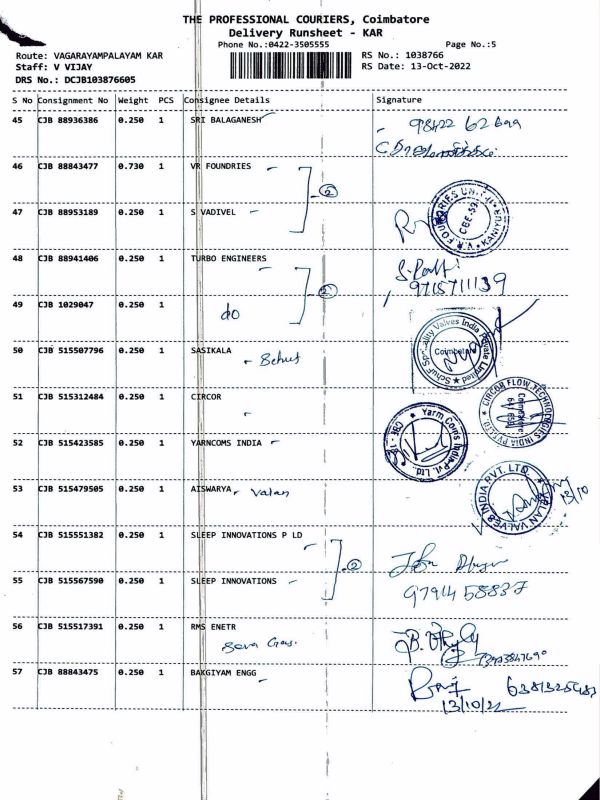 THE PROFESSIONAL COURIERS, Coimbatore
Delivery Runsheet - KAR
Phone No.:0422-3505555 Page No.:5
Route: VAGARAYAMPALAYAM KAR RS No.: 1038766
Staff: V VIJAY RS Date: 13-Oct-2022
DRS No.: DCJB103876605
S No Consignment No Weight PCS Consignee Details Signature
45 CJB 88936386 0.250 1 SRI BALAGANESH
46 CJB 88843477 0.730 1 VR FOUNDRIES
②
47 CJB 88953189 0.250 1 S VADIVEL
48 CJB 88941406 0.250 1 TURBO ENGINEERS
9715711139
②
49 CJB 1029047 0.250 1
do
50 CJB 515507796 0.250 1 SASIKALA
Schuf
Coimbatore
51 CJB 515312484 0.250 1 CIRCOR
CIRCOR FLOW TECHNOLOGIES INDIA PVT LTD
52 CJB 515423585 0.250 1 YARNCOMS INDIA
Yarm Coms India Pvt. Ltd.
53 CJB 515479505 0.250 1 AISWARYA
Valan
VALAN VALVES INDIA PVT. LTD.
13/10
54 CJB 515551382 0.250 1 SLEEP INNOVATIONS P LD
②
55 CJB 515567590 0.250 1 SLEEP INNOVATIONS
97914 58837
56 CJB 515517391 0.250 1 RMS ENETR
57 CJB 88843475 0.250 1 BAKGIYAM ENGG
13/10/22